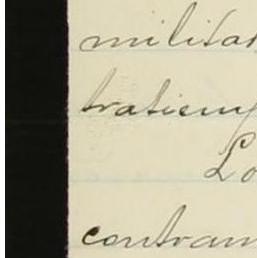 militar
tratieny
Lo
contram